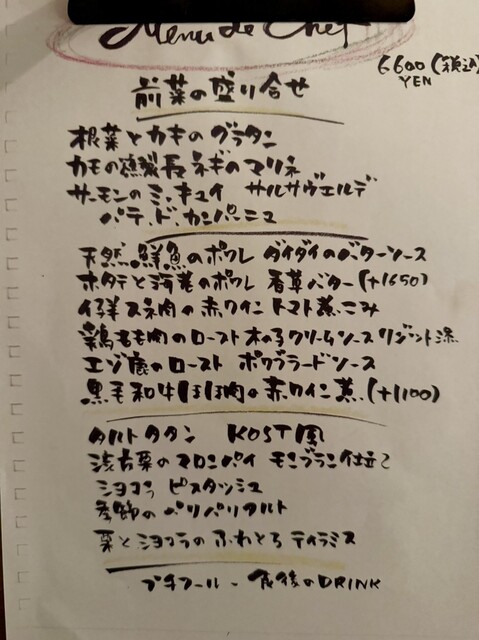 Menu de Chef
6600 (税込)
YEN
前菜の盛り合せ
根菜とカキのグラタン
カモの燻製長ネギのマリネ
サーモンのミ・キュイ サルサヴェルデ
パテ・ド・カンパーニュ
天然鮮魚のポワレ ダイダイのバターソース
ホタテと海老のポワレ 香草バター (+1650)
仔羊スネ肉の赤ワイントマト煮込み
鶏もも肉のロースト木の子クリームソースリゾット添
エゾ鹿のロースト ポワブラードソース
黒毛和牛ほほ肉の赤ワイン煮 (+1100)
タルトタタン KOST風
渋皮栗のマロンパイ モンブラン仕立て
ショコラ ピスタッシュ
季節のパリパリタルト
栗とショコラのふわとろティラミス
プチフール - 食後のDRINK